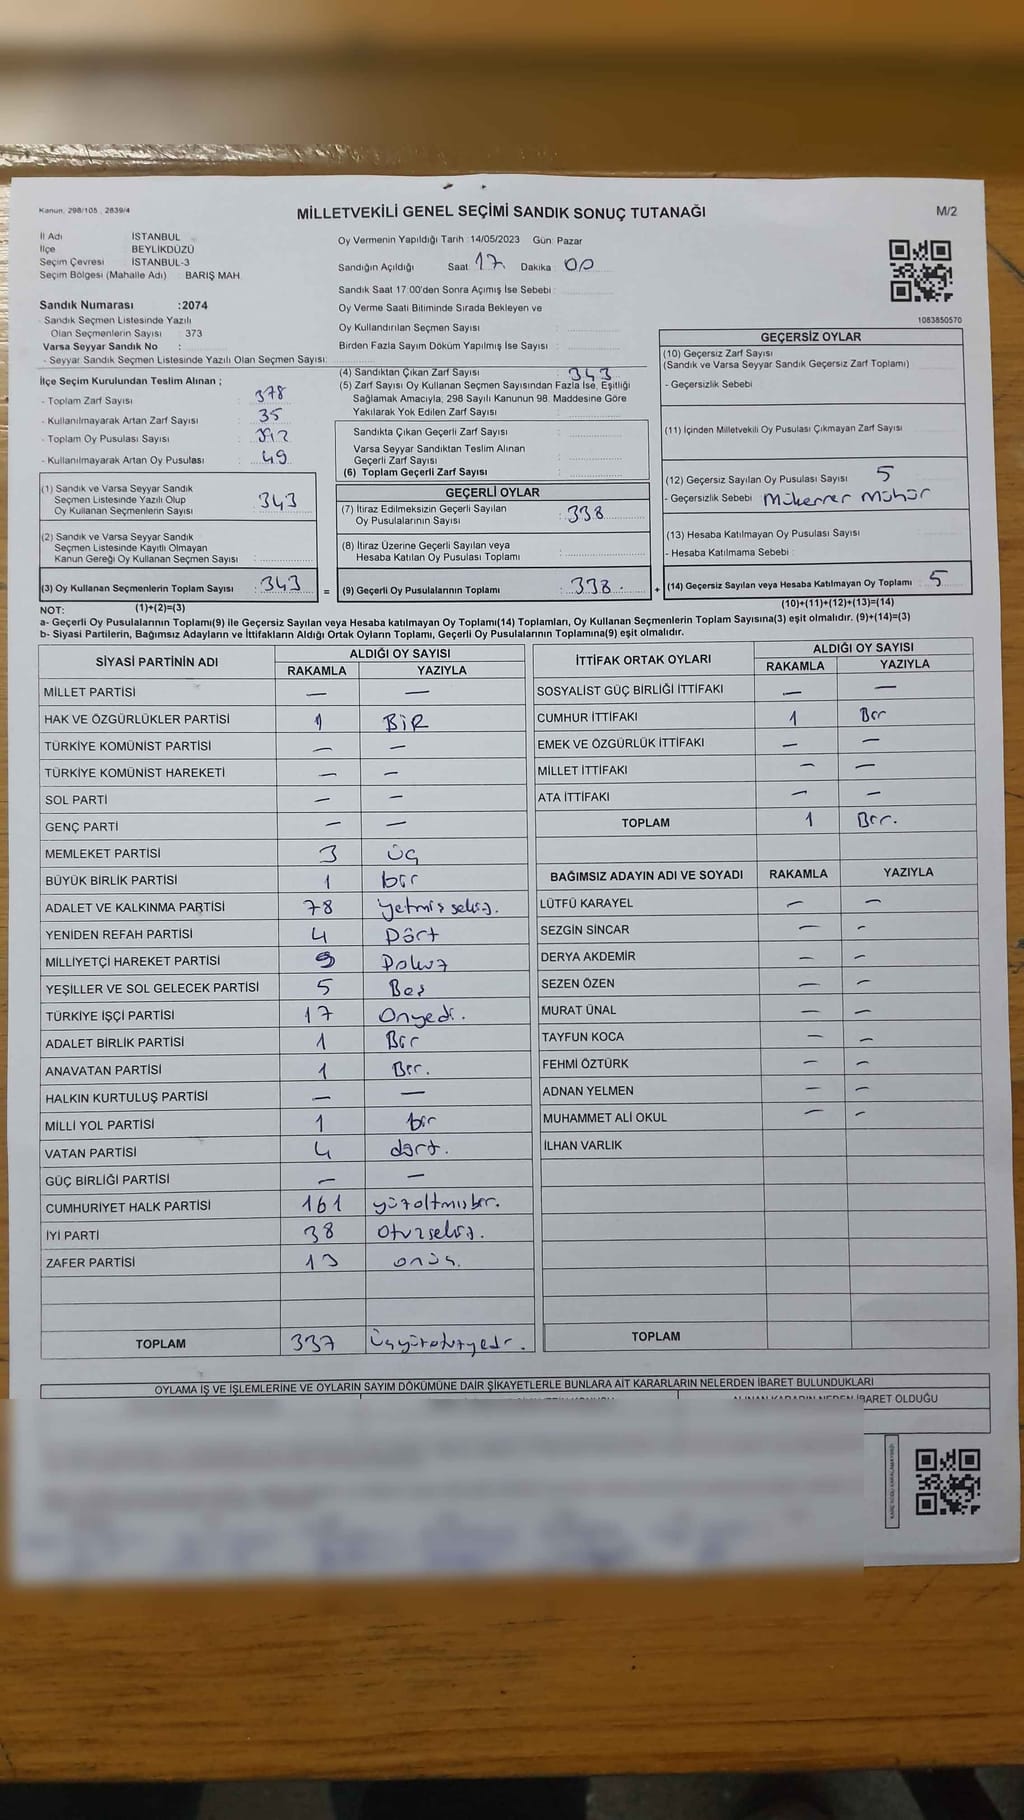 Kanun, 298/105 , 2839/4
MİLLETVEKİLİ GENEL SEÇİMİ SANDIK SONUÇ TUTANAĞI
M/2
İl Adı İSTANBUL
İlçe BEYLİKDÜZÜ
Seçim Çevresi İSTANBUL-3
Seçim Bölgesi (Mahalle Adı) : BARIŞ MAH
Sandık Numarası :2074
- Sandık Seçmen Listesinde Yazılı
Olan Seçmenlerin Sayısı : 373
Varsa Seyyar Sandık No :
- Seyyar Sandık Seçmen Listesinde Yazılı Olan Seçmen Sayısı:
Oy Vermenin Yapıldığı Tarih :14/05/2023 Gün: Pazar
Sandığın Açıldığı Saat 17 Dakika : 00
Sandık Saat 17.00'den Sonra Açımış İse Sebebi :
Oy Verme Saati Bitiminde Sırada Bekleyen ve
Oy Kullandırılan Seçmen Sayısı :
Birden Fazla Sayım Döküm Yapılmış İse Sayısı :
1083850570
İlçe Seçim Kurulundan Teslim Alınan ;
- Toplam Zarf Sayısı : 378
- Kullanılmayarak Artan Zarf Sayısı : 35
- Toplam Oy Pusulası Sayısı : 392
- Kullanılmayarak Artan Oy Pusulası : 49
(1) Sandık ve Varsa Seyyar Sandık
Seçmen Listesinde Yazılı Olup
Oy Kullanan Seçmenlerin Sayısı : 343
(2) Sandık ve Varsa Seyyar Sandık
Seçmen Listesinde Kayıtlı Olmayan
Kanun Gereği Oy Kullanan Seçmen Sayısı :
(3) Oy Kullanan Seçmenlerin Toplam Sayısı : 343 =
(4) Sandıktan Çıkan Zarf Sayısı : 343
(5) Zarf Sayısı Oy Kullanan Seçmen Sayısından Fazla İse, Eşitliği
Sağlamak Amacıyla, 298 Sayılı Kanunun 98. Maddesine Göre
Yakılarak Yok Edilen Zarf Sayısı :
Sandıkta Çıkan Geçerli Zarf Sayısı :
Varsa Seyyar Sandıktan Teslim Alınan
Geçerli Zarf Sayısı :
(6) Toplam Geçerli Zarf Sayısı :
GEÇERLİ OYLAR
(7) İtiraz Edilmeksizin Geçerli Sayılan
Oy Pusulalarının Sayısı : 338
(8) İtiraz Üzerine Geçerli Sayılan veya
Hesaba Katılan Oy Pusulası Toplamı :
(9) Geçerli Oy Pusulalarının Toplamı : 338 +
GEÇERSİZ OYLAR
(10) Geçersiz Zarf Sayısı
(Sandık ve Varsa Seyyar Sandık Geçersiz Zarf Toplamı) :
- Geçersizlik Sebebi :
(11) İçinden Milletvekili Oy Pusulası Çıkmayan Zarf Sayısı :
(12) Geçersiz Sayılan Oy Pusulası Sayısı : 5
- Geçersizlik Sebebi : Mükerrer Mühür
(13) Hesaba Katılmayan Oy Pusulası Sayısı :
- Hesaba Katılmama Sebebi :
(14) Geçersiz Sayılan veya Hesaba Katılmayan Oy Toplamı : 5
NOT: (1)+(2)=(3) (10)+(11)+(12)+(13)=(14)
a- Geçerli Oy Pusulalarının Toplamı(9) ile Geçersiz Sayılan veya Hesaba katılmayan Oy Toplamı(14) Toplamları, Oy Kullanan Seçmenlerin Toplam Sayısına(3) eşit olmalıdır. (9)+(14)=(3)
b- Siyasi Partilerin, Bağımsız Adayların ve İttifakların Aldığı Ortak Oyların Toplamı, Geçerli Oy Pusulalarının Toplamına(9) eşit olmalıdır.
SİYASİ PARTİNİN ADI ALDIĞI OY SAYISI
RAKAMLA YAZIYLA
MİLLET PARTİSİ — —
HAK VE ÖZGÜRLÜKLER PARTİSİ 1 BİR
TÜRKİYE KOMÜNİST PARTİSİ — —
TÜRKİYE KOMÜNİST HAREKETİ — —
SOL PARTİ — —
GENÇ PARTİ — —
MEMLEKET PARTİSİ 3 üç
BÜYÜK BİRLİK PARTİSİ 1 bir
ADALET VE KALKINMA PARTİSİ 78 yetmiş sekiz.
YENİDEN REFAH PARTİSİ 4 Dört
MİLLİYETÇİ HAREKET PARTİSİ 9 Dokuz
YEŞİLLER VE SOL GELECEK PARTİSİ 5 Beş
TÜRKİYE İŞÇİ PARTİSİ 17 Onyedi.
ADALET BİRLİK PARTİSİ 1 Bir
ANAVATAN PARTİSİ 1 Bir.
HALKIN KURTULUŞ PARTİSİ — —
MİLLİ YOL PARTİSİ 1 bir
VATAN PARTİSİ 4 dört.
GÜÇ BİRLİĞİ PARTİSİ — —
CUMHURİYET HALK PARTİSİ 161 yüzaltmışbir.
İYİ PARTİ 38 Otuzsekiz.
ZAFER PARTİSİ 13 onüç.
TOPLAM 337 Üçyüzotuzyedi.
İTTİFAK ORTAK OYLARI ALDIĞI OY SAYISI
RAKAMLA YAZIYLA
SOSYALİST GÜÇ BİRLİĞİ İTTİFAKI — —
CUMHUR İTTİFAKI 1 Bir
EMEK VE ÖZGÜRLÜK İTTİFAKI — —
MİLLET İTTİFAKI — —
ATA İTTİFAKI — —
TOPLAM 1 Bir.
BAĞIMSIZ ADAYIN ADI VE SOYADI RAKAMLA YAZIYLA
LÜTFÜ KARAYEL — —
SEZGİN SİNCAR — —
DERYA AKDEMİR — —
SEZEN ÖZEN — —
MURAT ÜNAL — —
TAYFUN KOCA — —
FEHMİ ÖZTÜRK — —
ADNAN YELMEN — —
MUHAMMET ALİ OKUL — —
İLHAN VARLIK
TOPLAM
OYLAMA İŞ VE İŞLEMLERİNE VE OYLARIN SAYIM DÖKÜMÜNE DAİR ŞİKAYETLERLE BUNLARA AİT KARARLARIN NELERDEN İBARET BULUNDUKLARI
ALINAN KARARIN NEDEN İBARET OLDUĞU